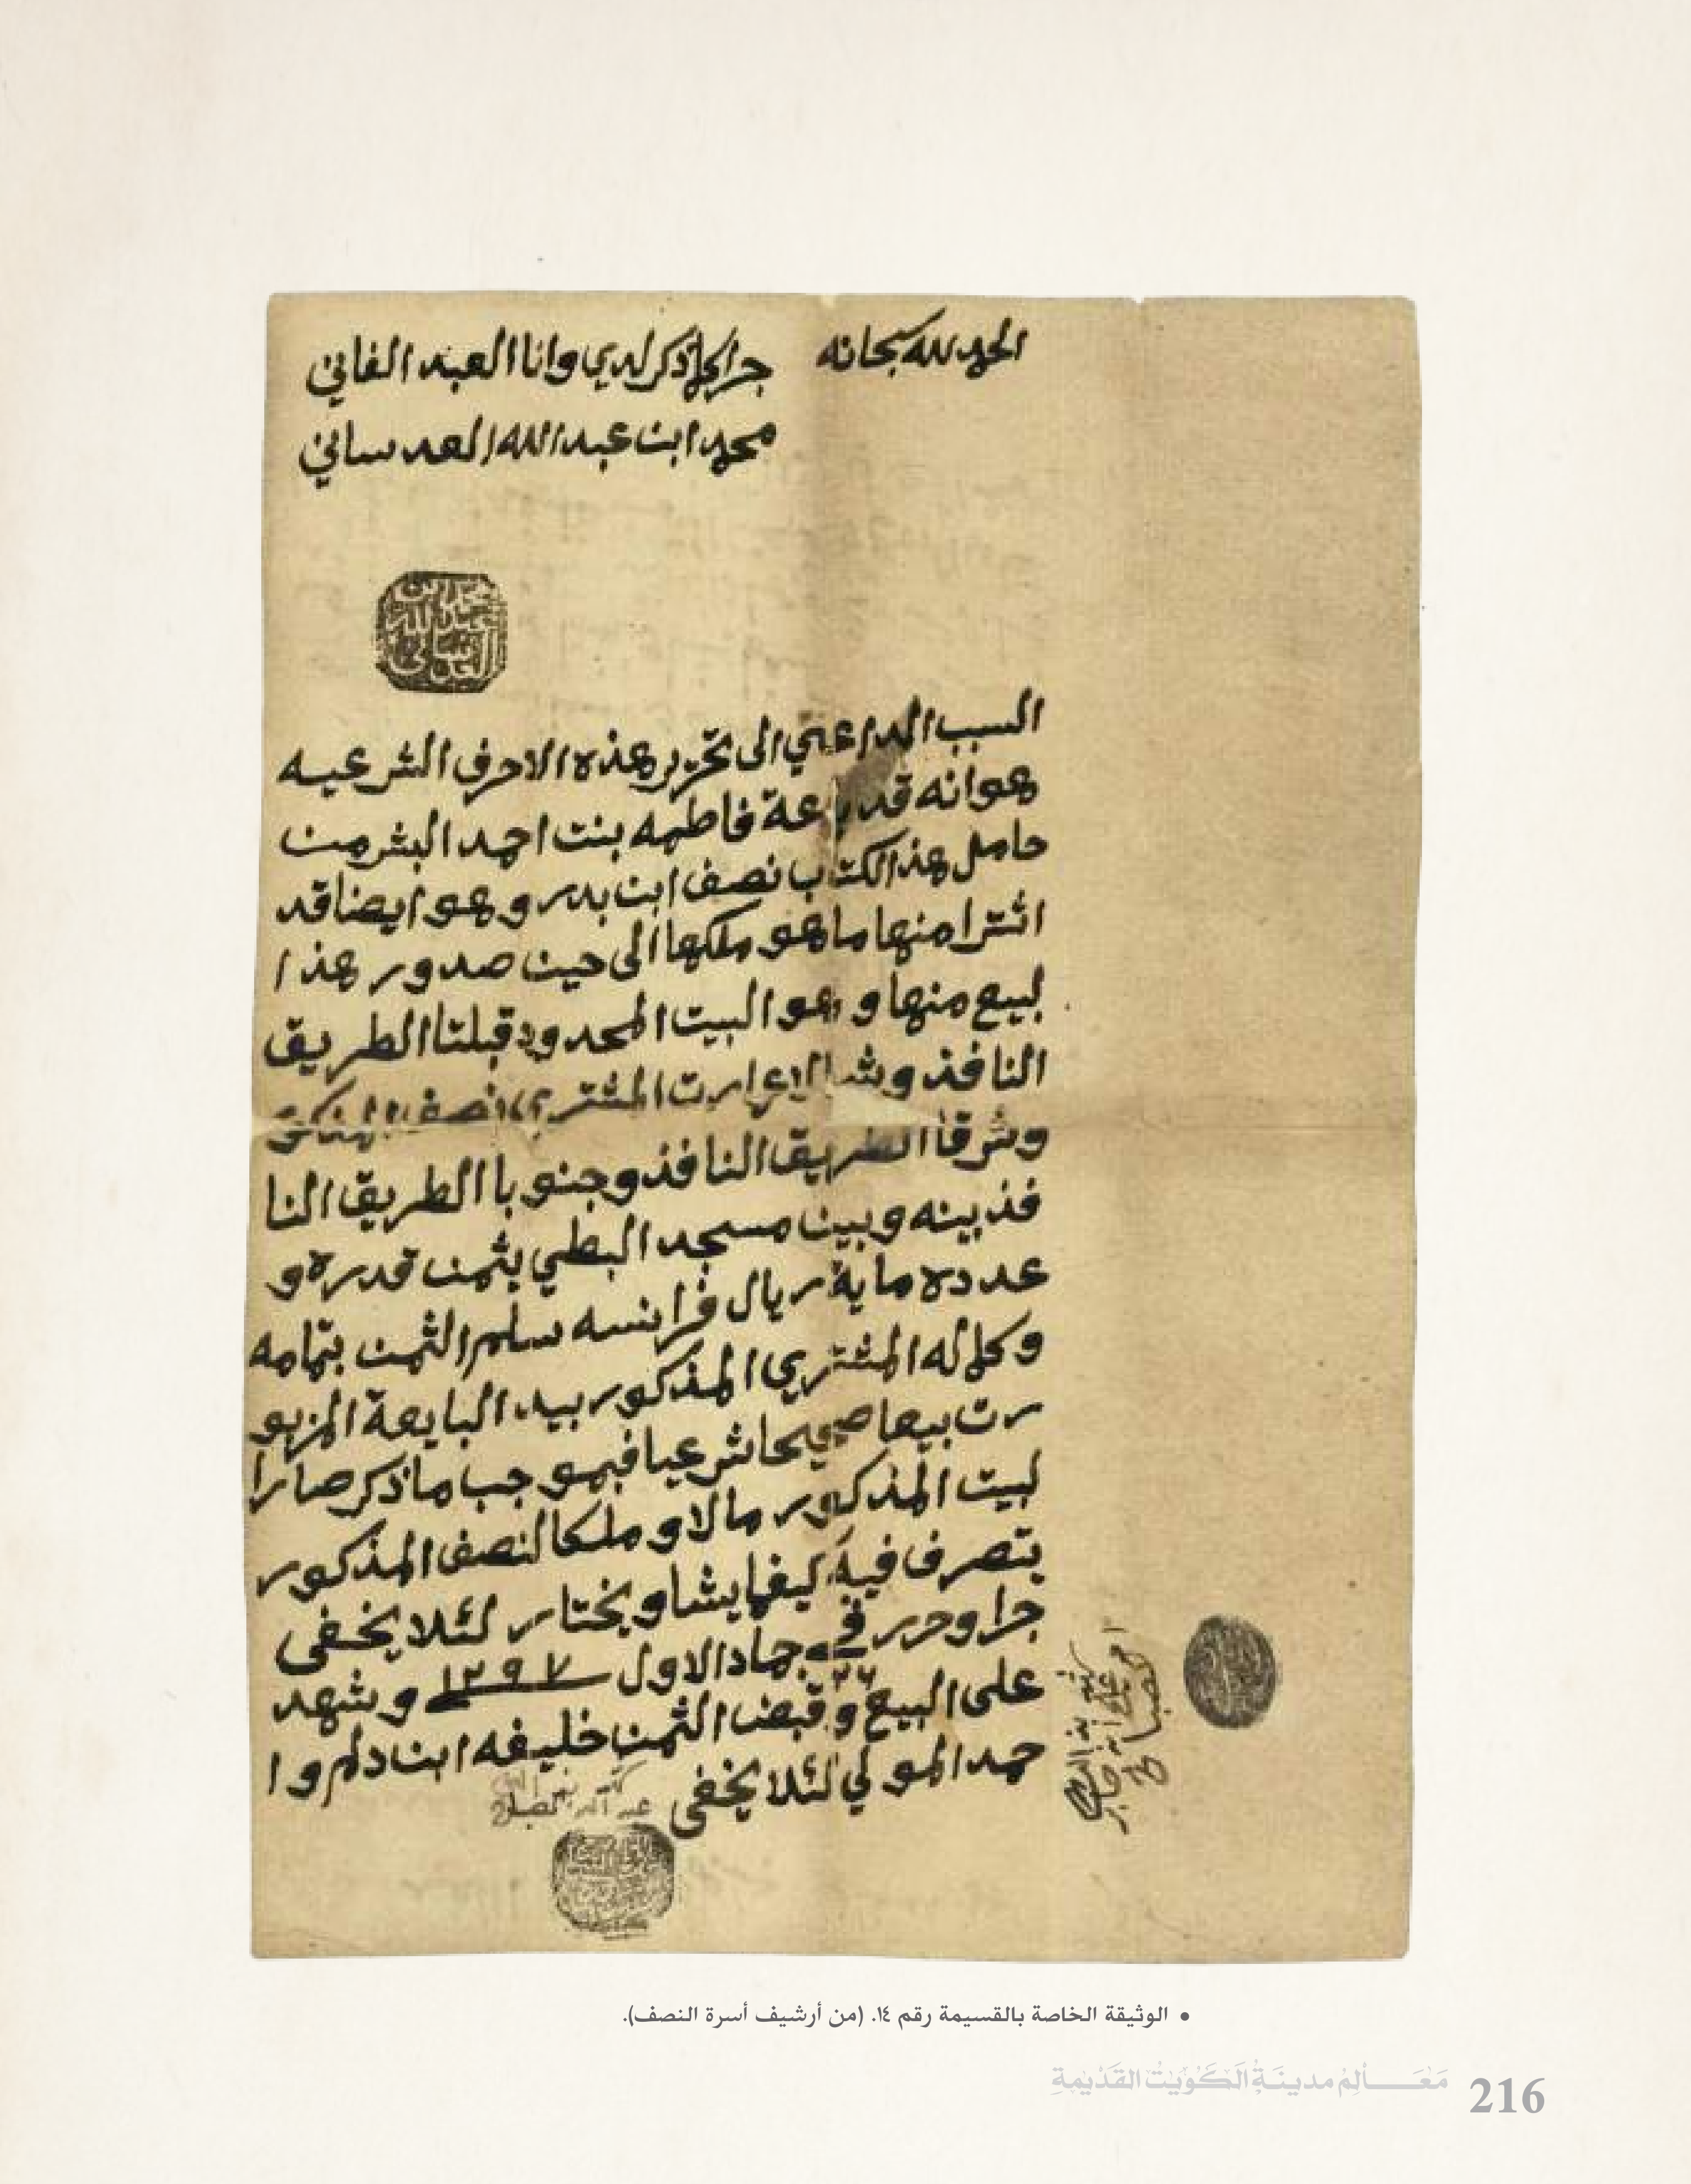 الحمد لله سبحانه
جرا كلما ذكر لدي وانا العبد الفاني
محمد ابن عبد الله العدساني
السبب الداعي الى تحرير هذه الاحرف الشرعيه
هو انه قد باعة فاطمه بنت احمد البشر من
حامل هذا الكتاب نصف ابن بدر وهو ايضا قد
اشترا منها ما هو ملكها الى حين صدور هذا ا
لبيع منها وهو البيت المحدود قبلتا الطريق
النافذ وشمالا عمارت المشتري نصف المذكور
وشرقا الطريق النافذ وجنوبا الطريق النا
فذ بينه وبين مسجد البطي بثمن قدره و
عدده ماية ريال فرانسه سلم الثمن بتمامه
وكماله المشتري المذكور بيد البايعة المزبو
رت بيعا صحيحا شرعيا فبموجب ما ذكر صار ا
لبيت المذكور مالا وملكا لنصف المذكور
يتصرف فيه كيفما يشا ويختار لئلا يخفى
جرا وحرر في ٢٦ جماد الاول ١٢٩٧ وشهد
على البيع وقبض الثمن خليفه ابن دلم وا
حمد المولي لئلا يخفى
• الوثيقة الخاصة بالقسيمة رقم ١٤. (من أرشيف أسرة النصف).
مَعَالِمُ مدينَةِ الكُوَيْتْ القَدْيمةِ 216